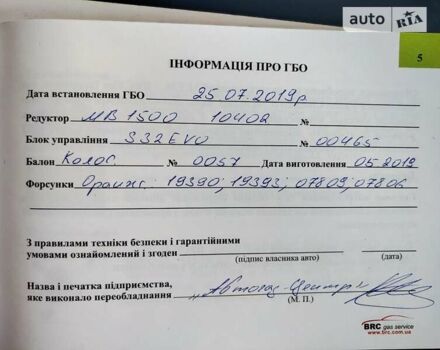 auto RIA
5
ІНФОРМАЦІЯ ПРО ГБО
Дата встановлення ГБО 25.07.2019р
Редуктор МВ 1500 10402 №
Блок управління S32EVO № 00465
Балон Колос № 0057 Дата виготовлення 05.2019
Форсунки Оранж: 19390; 19393; 07809; 07806
З правилами техніки безпеки і гарантійними
умовами ознайомлений і згоден
(підпис власника авто) (дата)
Назва і печатка підприємства,
яке виконало переобладнання „Автогаз-Центр"
(М. П.)
BRC gas service
www.brc.com.ua